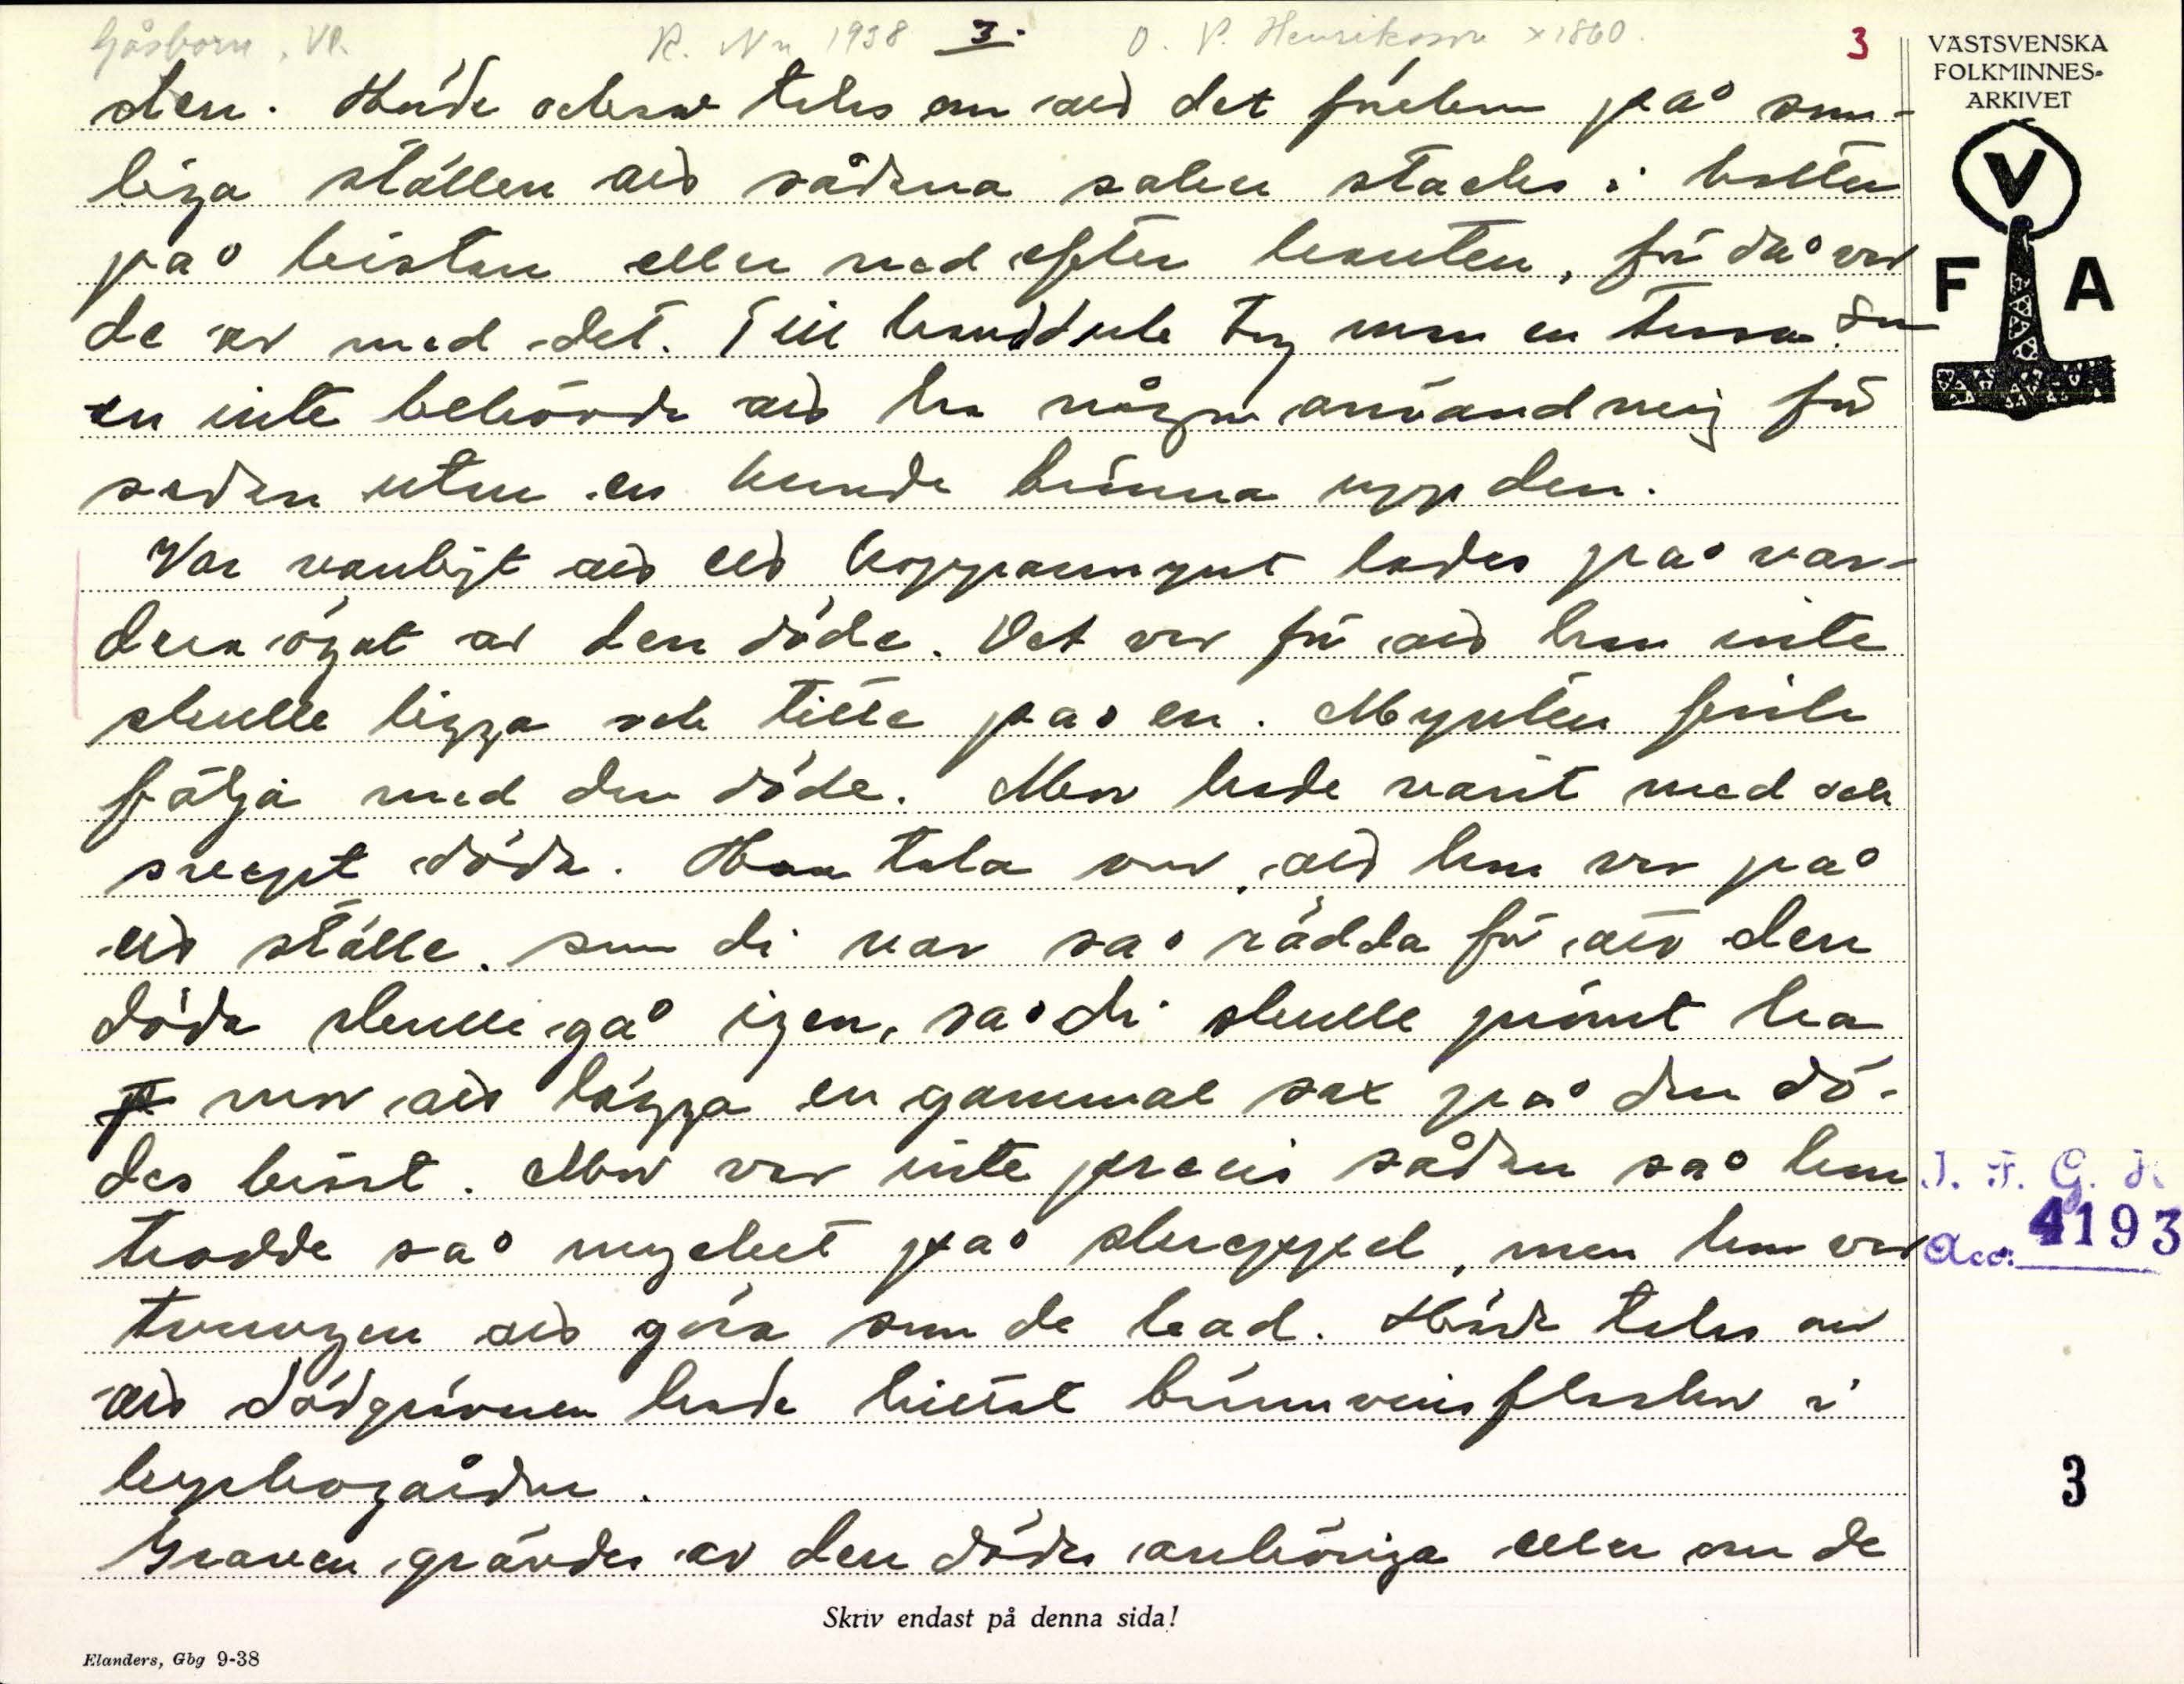 Gåsborn, Vl. R. Nn 1938 3. O. P. Henriksson *1860. 3
VÄSTSVENSKA
FOLKMINNES-
ARKIVET
V
F A
den. Hörde också talas om att det förekom på som-
liga ställen att sådana saker stacks i botten
på kistan eller ned efter kanten, för då var
de av med det. Till tog man en trasa som
en inte behövde att ha någon användning för
sedan utan en kunde bränna upp den.
Var vanligt att ett kopparmynt lades på var-
dera ögat av den döde. Det var för att han inte
skulle ligga och titta på en. Mynten fick
följa med den döde. Mor hade varit med och
svept döda. Hon tala om, att hon var på
ett ställe som di var så rädda för att den
döda skulle gå igen, så di skulle prömt ha
mor att lägga en gammal sax på den dö-
des bröst. Mor var inte precis sådan så hon
trodde så mycket på skreppel, men hon var
tvungen att göra som de bad. Hörde talas om
att dödgrävaren hade hittat brännvinsflaskor i
kyrkogården.
Graven grävdes av den dödes anhöriga eller om de
I. F. G. H
Acc. 4193
3
Skriv endast på denna sida!
Elanders, Gbg 9-38